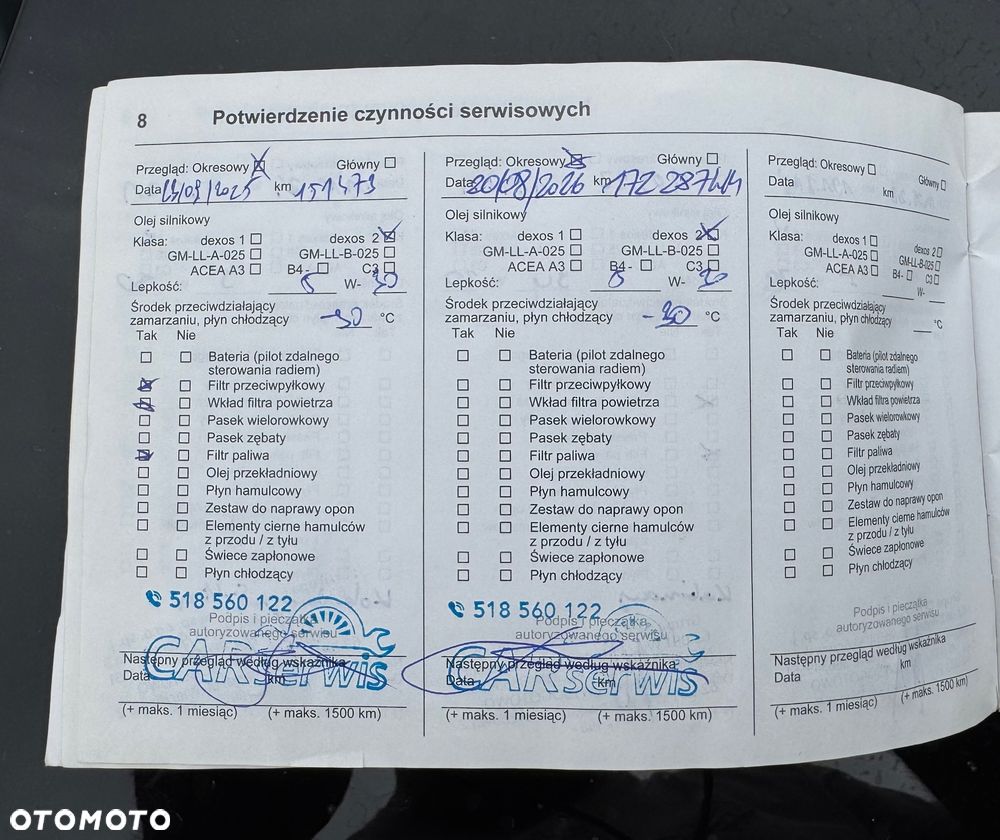 8 Potwierdzenie czynności serwisowych
Przegląd: Okresowy Główny
Data km 151479
Olej silnikowy
Klasa: dexos 1 dexos 2
GM-LL-A-025 GM-LL-B-025
ACEA A3 B4- C3
Lepkość: W- 30
Środek przeciwdziałający
zamarzaniu, płyn chłodzący -30 °C
Tak Nie
Bateria (pilot zdalnego
sterowania radiem)
Filtr przeciwpyłkowy
Wkład filtra powietrza
Pasek wielorowkowy
Pasek zębaty
Filtr paliwa
Olej przekładniowy
Płyn hamulcowy
Zestaw do naprawy opon
Elementy cierne hamulców
z przodu / z tyłu
Świece zapłonowe
Płyn chłodzący
518 560 122
Podpis i pieczątka
autoryzowanego serwisu
CARserwis
Następny przegląd według wskaźnika
Data km
(+ maks. 1 miesiąc) (+ maks. 1500 km)
Przegląd: Okresowy Główny
Data 20/08/2026 km 172 287km
Olej silnikowy
Klasa: dexos 1 dexos 2
GM-LL-A-025 GM-LL-B-025
ACEA A3 B4- C3
Lepkość: W- 30
Środek przeciwdziałający
zamarzaniu, płyn chłodzący -30 °C
Tak Nie
Bateria (pilot zdalnego
sterowania radiem)
Filtr przeciwpyłkowy
Wkład filtra powietrza
Pasek wielorowkowy
Pasek zębaty
Filtr paliwa
Olej przekładniowy
Płyn hamulcowy
Zestaw do naprawy opon
Elementy cierne hamulców
z przodu / z tyłu
Świece zapłonowe
Płyn chłodzący
518 560 122
Podpis i pieczątka
autoryzowanego serwisu
CARserwis
Następny przegląd według wskaźnika
Data km
(+ maks. 1 miesiąc) (+ maks. 1500 km)
Przegląd: Okresowy Główny
Data km
Olej silnikowy
Klasa: dexos 1 dexos 2
GM-LL-A-025 GM-LL-B-025
ACEA A3 B4- C3
Lepkość: W-
Środek przeciwdziałający
zamarzaniu, płyn chłodzący °C
Tak Nie
Bateria (pilot zdalnego
sterowania radiem)
Filtr przeciwpyłkowy
Wkład filtra powietrza
Pasek wielorowkowy
Pasek zębaty
Filtr paliwa
Olej przekładniowy
Płyn hamulcowy
Zestaw do naprawy opon
Elementy cierne hamulców
z przodu / z tyłu
Świece zapłonowe
Płyn chłodzący
Podpis i pieczątka
autoryzowanego serwisu
Następny przegląd według wskaźnika
Data km
(+ maks. 1 miesiąc) (+ maks. 1500 km)
OTOMOTO